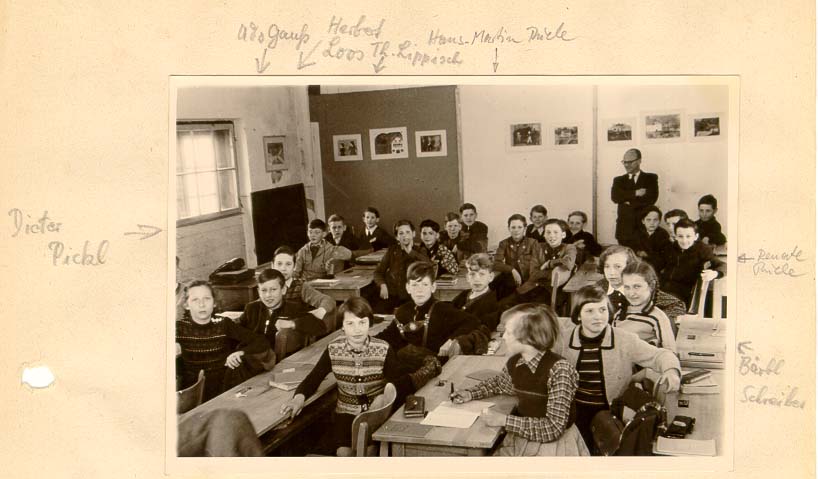 Udo Gauß Herbert
Loos Th. Lippisch
Hans-Martin Thiele
Dieter
Pickl
Renate
Thiele
Bärbl
Schreiber